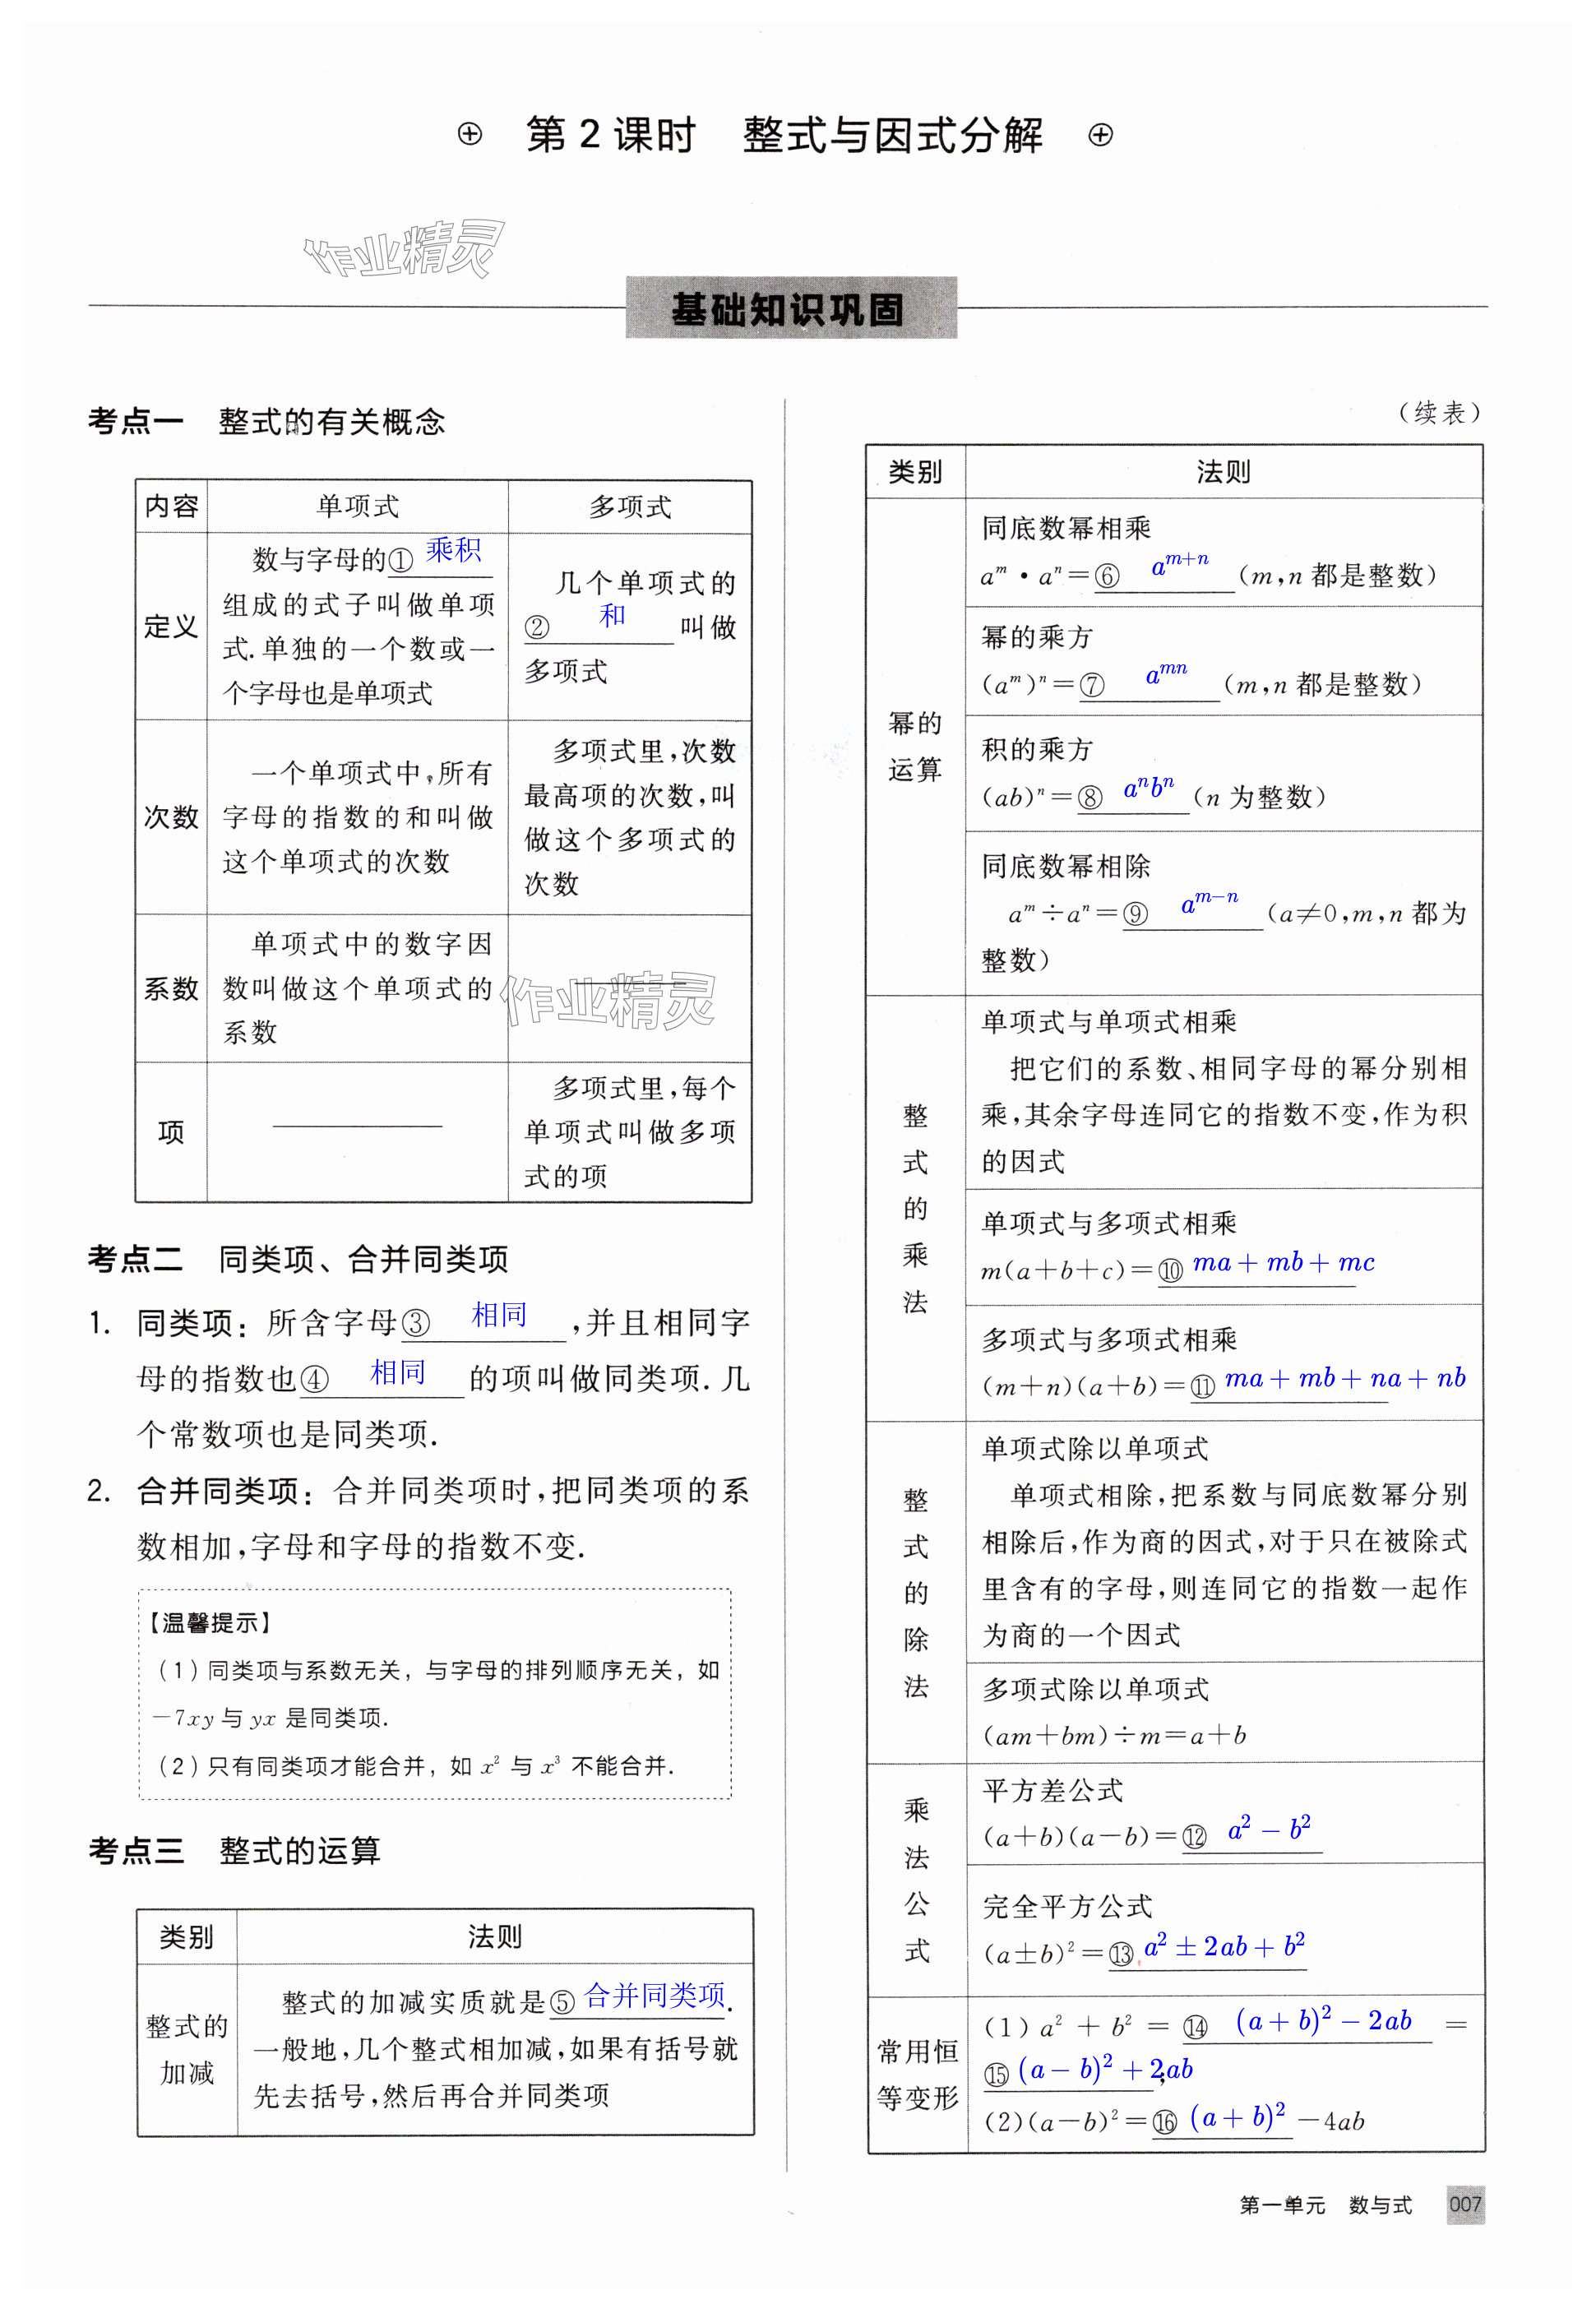 第2课时 整式与因式分解
作业精灵
基础知识巩固
考点一 整式的有关概念
内容 单项式 多项式
定义
数与字母的① 乘积
组成的式子叫做单项
式.单独的一个数或一
个字母也是单项式
几个单项式的
② 和 叫做
多项式
次数
一个单项式中,所有
字母的指数的和叫做
这个单项式的次数
多项式里,次数
最高项的次数,叫
做这个多项式的
次数
系数
单项式中的数字因
数叫做这个单项式的
系数
作业精灵
项
多项式里,每个
单项式叫做多项
式的项
考点二 同类项、合并同类项
1. 同类项：所含字母③ 相同 ,并且相同字
母的指数也④ 相同 的项叫做同类项.几
个常数项也是同类项.
2. 合并同类项：合并同类项时,把同类项的系
数相加,字母和字母的指数不变.
【温馨提示】
(1)同类项与系数无关，与字母的排列顺序无关，如
-7xy与yx是同类项.
(2)只有同类项才能合并，如x²与x³不能合并.
考点三 整式的运算
类别 法则
整式的
加减
整式的加减实质就是⑤ 合并同类项.
一般地,几个整式相加减,如果有括号就
先去括号,然后再合并同类项
(续表)
类别 法则
幂的
运算
同底数幂相乘
aᵐ·aⁿ=⑥ aᵐ⁺ⁿ (m,n都是整数)
幂的乘方
(aᵐ)ⁿ=⑦ aᵐⁿ (m,n都是整数)
积的乘方
(ab)ⁿ=⑧ aⁿbⁿ (n为整数)
同底数幂相除
aᵐ÷aⁿ=⑨ aᵐ⁻ⁿ (a≠0,m,n都为
整数)
整
式
的
乘
法
单项式与单项式相乘
把它们的系数、相同字母的幂分别相
乘,其余字母连同它的指数不变,作为积
的因式
单项式与多项式相乘
m(a+b+c)=⑩ ma+mb+mc
多项式与多项式相乘
(m+n)(a+b)=⑪ ma+mb+na+nb
整
式
的
除
法
单项式除以单项式
单项式相除,把系数与同底数幂分别
相除后,作为商的因式,对于只在被除式
里含有的字母,则连同它的指数一起作
为商的一个因式
多项式除以单项式
(am+bm)÷m=a+b
乘
法
公
式
平方差公式
(a+b)(a-b)=⑫ a²-b²
完全平方公式
(a±b)²=⑬ a²±2ab+b²
常用恒
等变形
(1)a²+b²=⑭ (a+b)²-2ab =
⑮ (a-b)²+2ab;
(2)(a-b)²=⑯ (a+b)² -4ab
第一单元 数与式 007